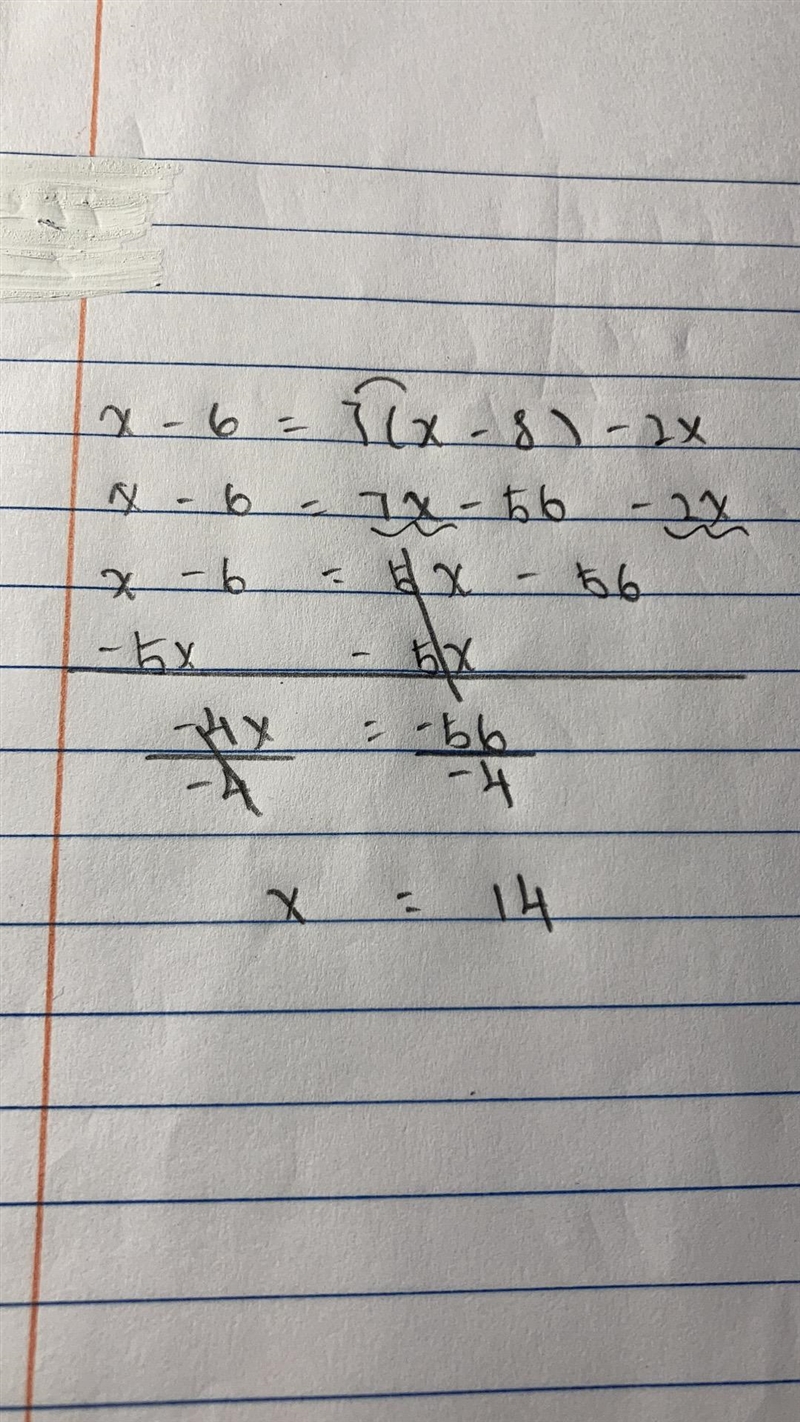 x - 6 = 7(x - 8) - 2x
x - 6 = 7x - 56 - 2x
x - 6 = 5x - 56
-5x - 5x
-4x = -56
-4 -4
x = 14